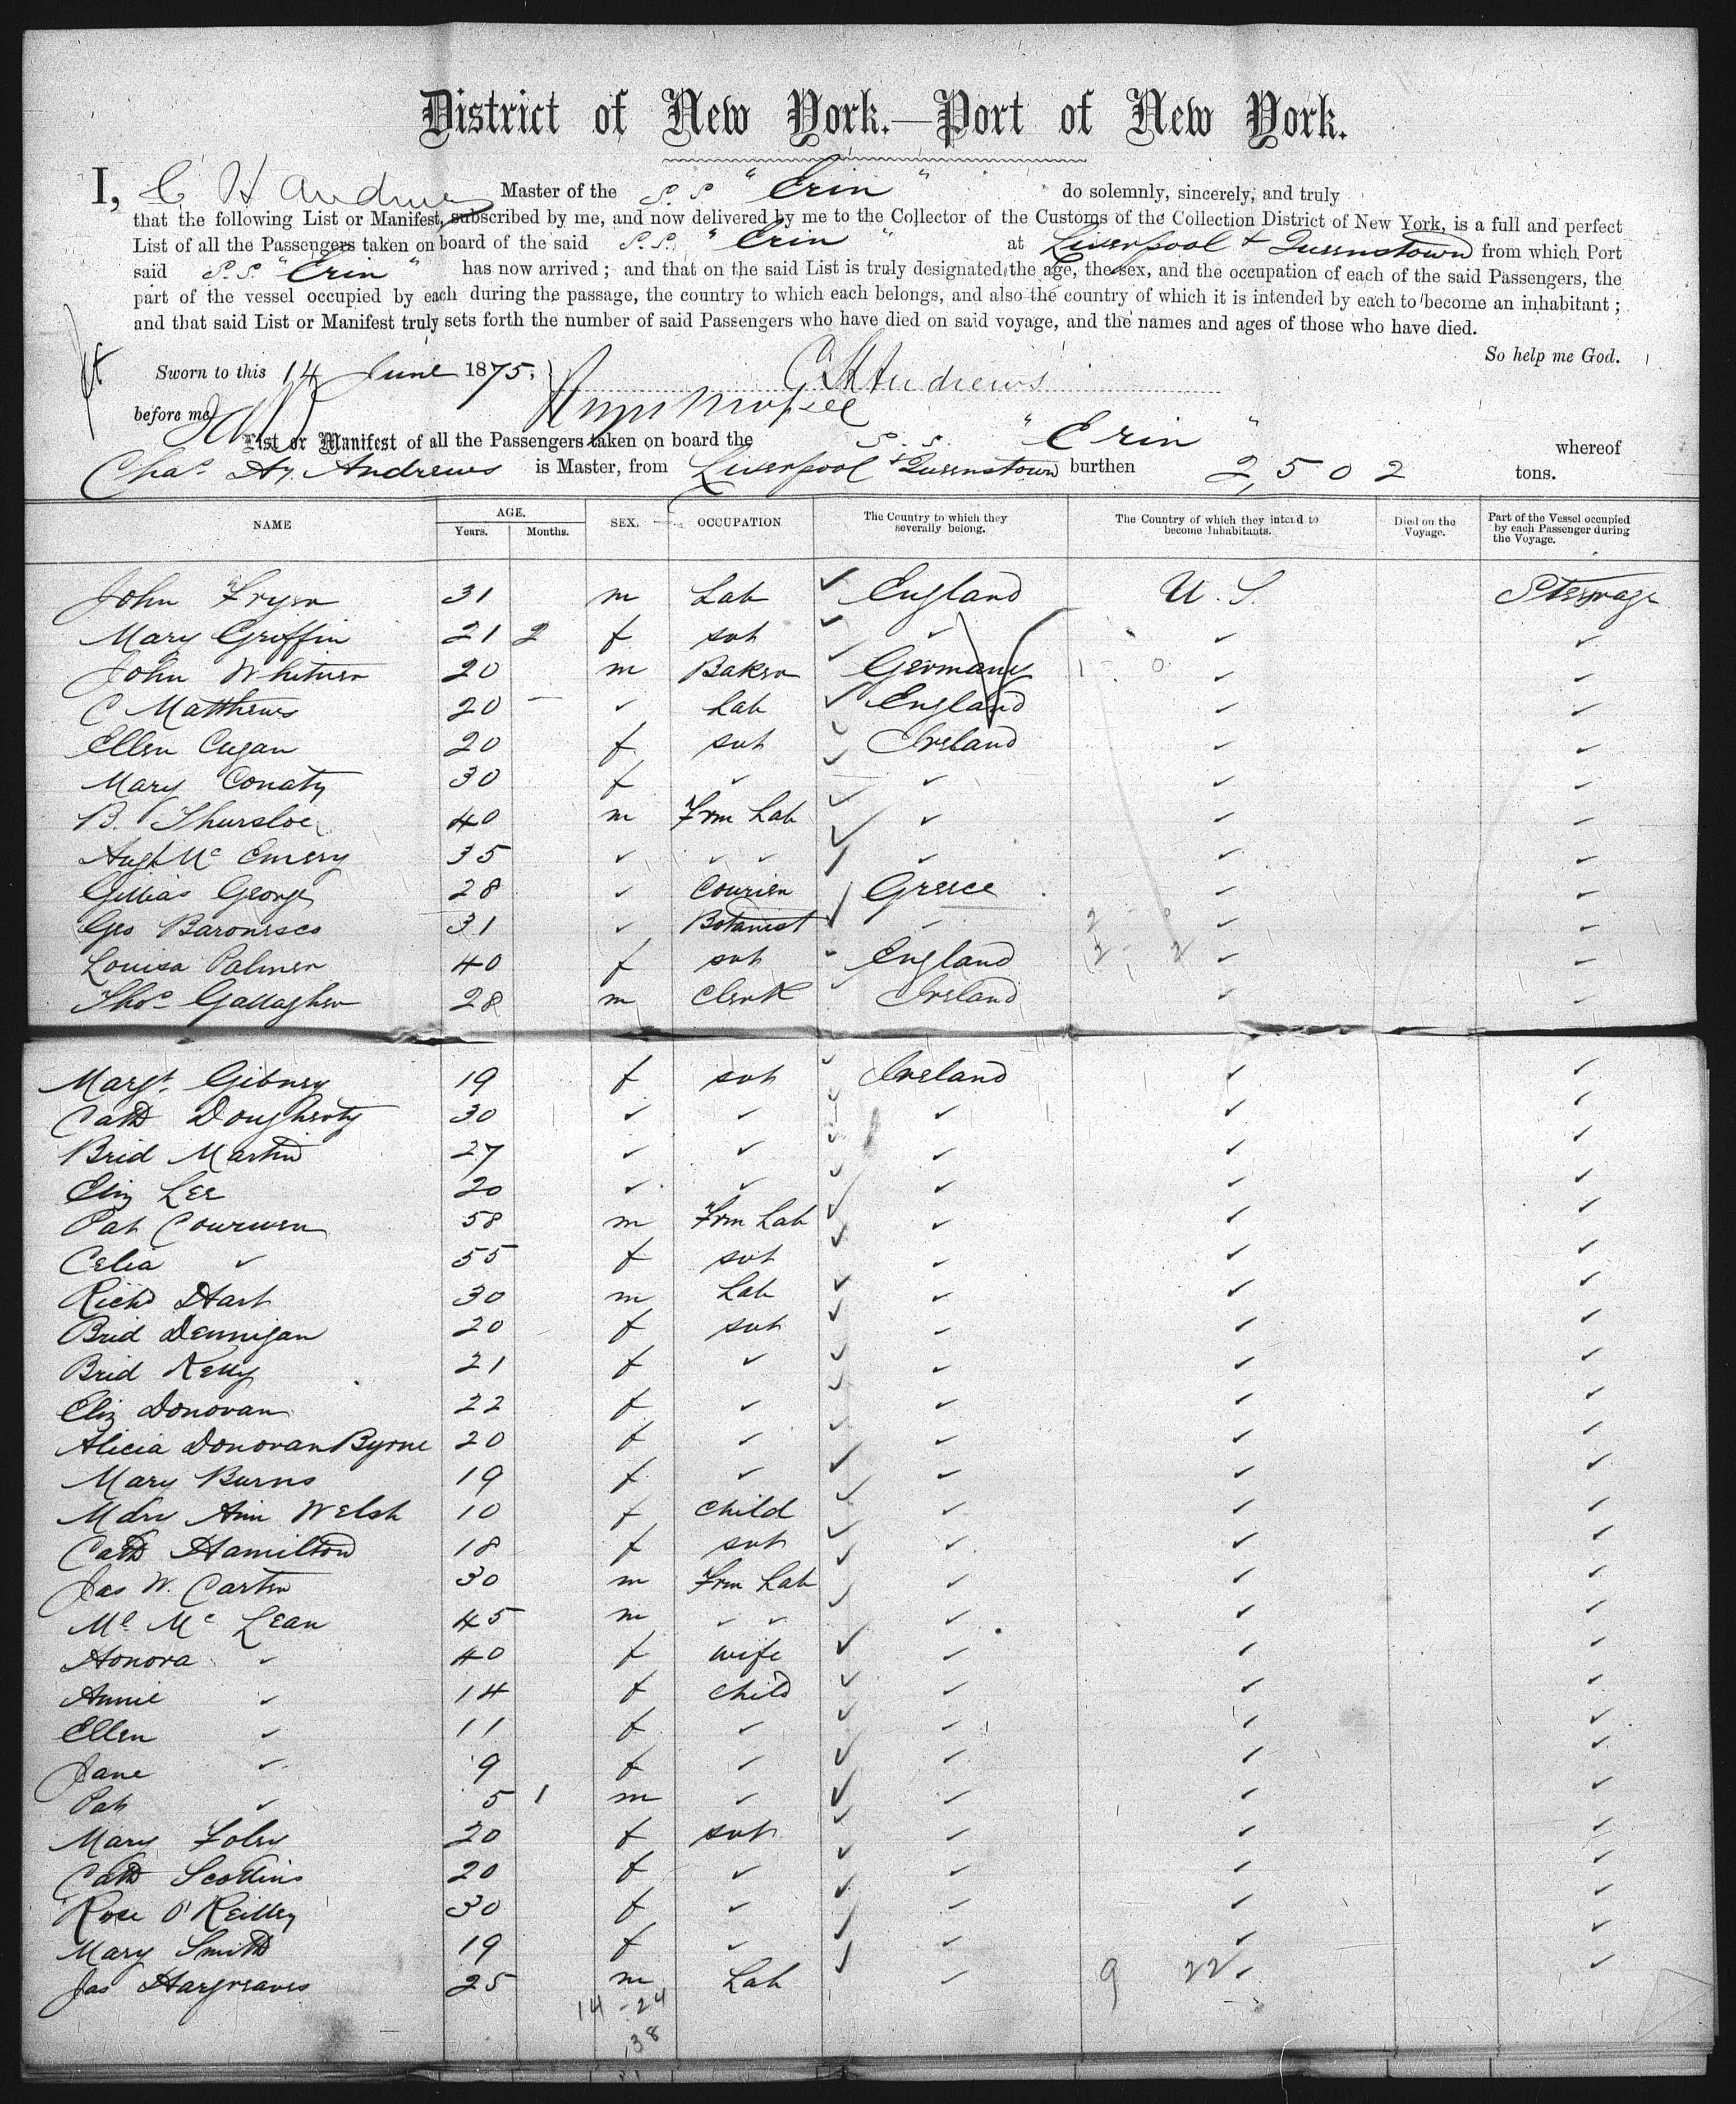 District of New York.—Port of New York.
I, C H Andrews Master of the S.S. "Erin" do solemnly, sincerely, and truly
that the following List or Manifest, subscribed by me, and now delivered by me to the Collector of the Customs of the Collection District of New York, is a full and perfect
List of all the Passengers taken on board of the said S.S. "Erin" at Liverpool + Queenstown from which Port
said S.S. "Erin" has now arrived; and that on the said List is truly designated the age, the sex, and the occupation of each of the said Passengers, the
part of the vessel occupied by each during the passage, the country to which each belongs, and also the country of which it is intended by each to become an inhabitant;
and that said List or Manifest truly sets forth the number of said Passengers who have died on said voyage, and the names and ages of those who have died.
So help me God.
Sworn to this 14 June 1875,
C H Andrews
before me
List or Manifest of all the Passengers taken on board the S.S. "Erin" whereof
Chas Hy. Andrews is Master, from Liverpool + Queenstown burthen 2,502 tons.
NAME AGE. Years. Months. SEX. OCCUPATION The Country to which they severally belong. The Country of which they intend to become Inhabitants. Died on the Voyage. Part of the Vessel occupied by each Passenger during the Voyage.
John Fryer 31 m Lab ✓ England U.S. Steerage
Mary Griffin 21 2 f svt ✓ ✓ ✓ ✓
John Whitner 20 m Baker ✓ Germany ✓ ✓
C Matthews 20 – ✓ Lab ✓ England ✓ ✓
Ellen Cugan 20 f svt ✓ Ireland ✓ ✓
Mary Conaty 30 f ✓ ✓ ✓ ✓ ✓
B. Thursloe 40 m Frm Lab ✓ ✓ ✓ ✓
Hugh Mc Emery 35 ✓ ✓ ✓ ✓ ✓ ✓ ✓
Gillias George 28 ✓ Courier ✓ Greece ✓ ✓
Geo Baronesco 31 ✓ Botanist ✓ ✓ ✓ ✓
Louisa Palmer 40 f svt ✓ England ✓ ✓
Thos Gallagher 28 m Clerk ✓ Ireland ✓ ✓
Margt. Gibney 19 f svt ✓ Ireland ✓ ✓
Cath Dougherty 30 ✓ ✓ ✓ ✓ ✓ ✓
Brid Martin 27 ✓ ✓ ✓ ✓ ✓ ✓
Eliz Lee 20 ✓ ✓ ✓ ✓ ✓ ✓
Pat Courwen 58 m Frm Lab ✓ ✓ ✓ ✓
Celia ✓ 55 f svt ✓ ✓ ✓ ✓
Richd Hart 30 m Lab ✓ ✓ ✓ ✓
Brid Dennigan 20 f svt ✓ ✓ ✓ ✓
Brid Kelly 21 f ✓ ✓ ✓ ✓ ✓
Eliz Donovan 22 f ✓ ✓ ✓ ✓ ✓
Alicia Donovan Byrne 20 f ✓ ✓ ✓ ✓ ✓
Mary Burns 19 f ✓ ✓ ✓ ✓ ✓
Mary Ann Welsh 10 f child ✓ ✓ ✓ ✓
Cath Hamilton 18 f svt ✓ ✓ ✓ ✓
Jas W. Carter 30 m Frm Lab ✓ ✓ ✓ ✓
Ml Mc Lean 45 m ✓ ✓ ✓ ✓ ✓ ✓
Honora ✓ 40 f wife ✓ ✓ ✓ ✓
Annie ✓ 14 f child ✓ ✓ ✓ ✓
Ellen ✓ 11 f ✓ ✓ ✓ ✓ ✓
Jane ✓ 9 f ✓ ✓ ✓ ✓ ✓
Pat ✓ 5 1 m ✓ ✓ ✓ ✓ ✓
Mary Foley 20 f svt ✓ ✓ ✓ ✓
Cath Scollins 20 f ✓ ✓ ✓ ✓ ✓
Rose O'Reilley 30 f ✓ ✓ ✓ ✓ ✓
Mary Smith 19 f ✓ ✓ ✓ ✓ ✓
Jas Hargreaves 25 m Lab ✓ ✓ 9 22 ✓ ✓
14 - 24
38